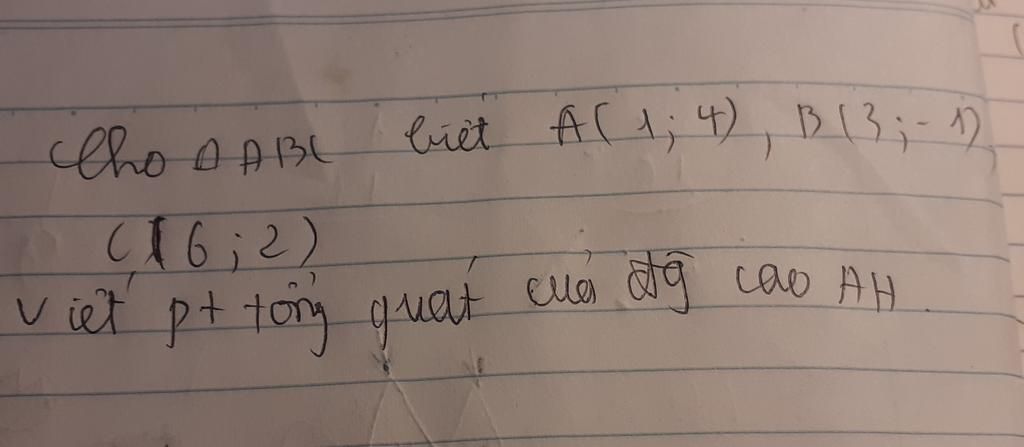 Cho Δ ABC biết A(1;4), B(3;-1),
C(6;2)
Viết pt tổng quát của đg cao AH.